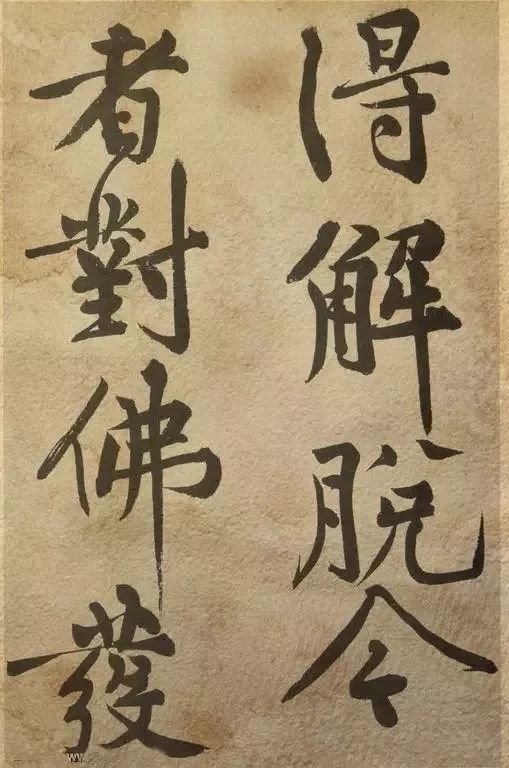 得解脱今
者對佛發